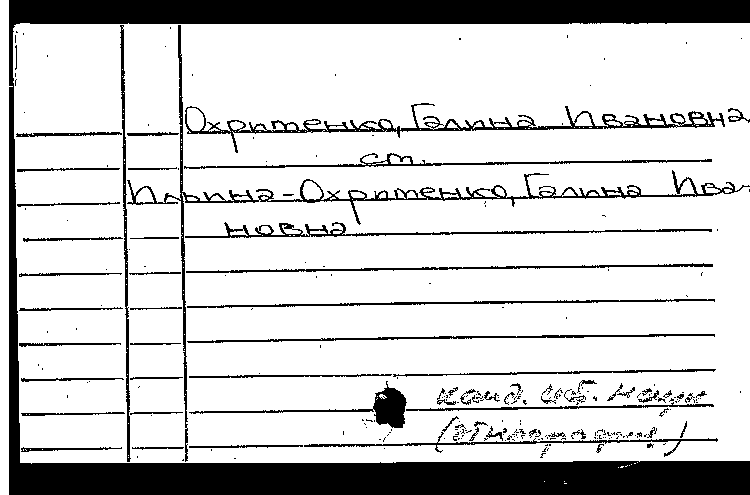 Охритенко, Галина Ивановна
ст.
Ильина-Охритенко, Галина Ива-
новна
канд. ист. наук
(этнография)